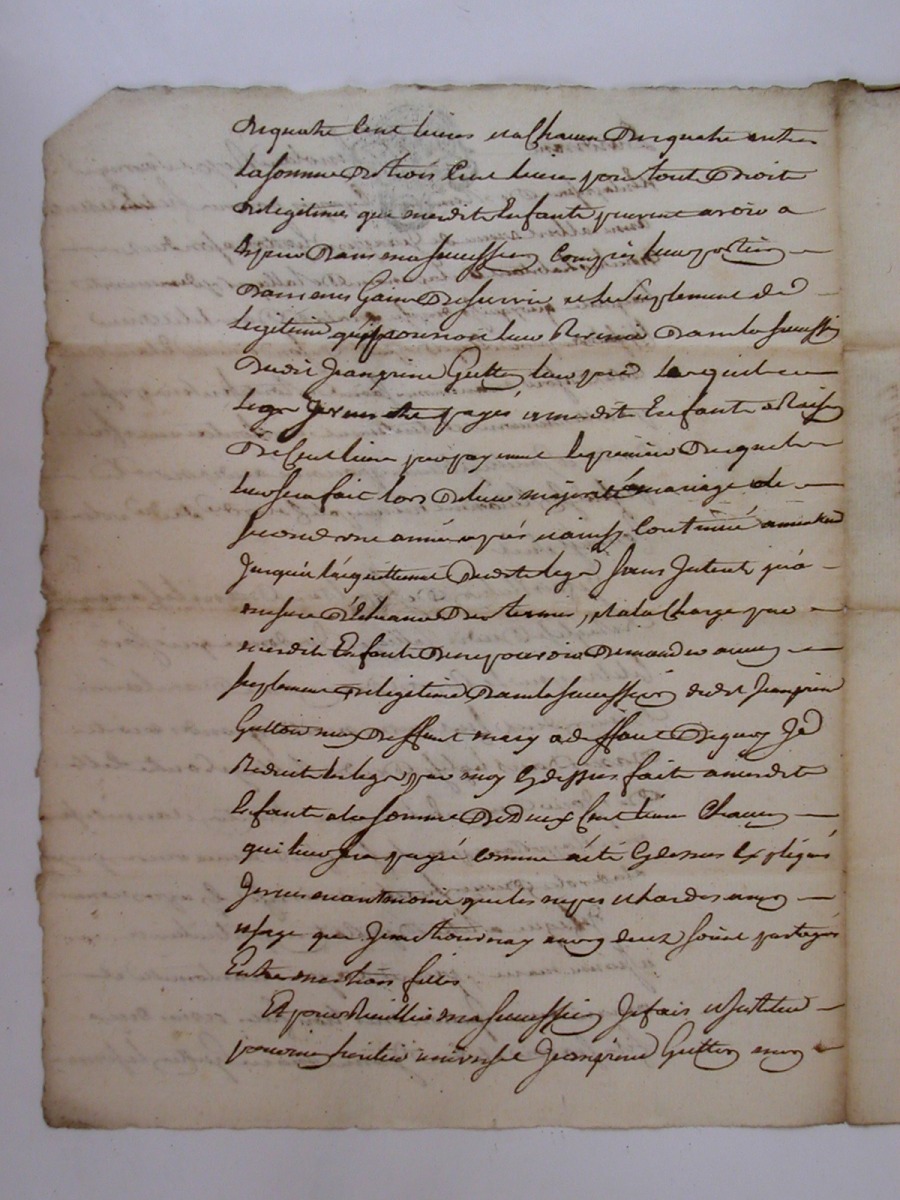 de quatre cent livres et a Chacun des quatre autres
la somme de trois Cent livres pour tout Droit
de legitime que mesdits Enfants peuvent avoir a
dans ma succession Compris leur portion
dans mes Gains de survie et le suplement de
legitime qui pouroit leur Revenir dans la succession
dudit Jeanpierre Gutton leur pere lesquels
legs seront payés a mesdits Enfants a Raison
De Cent livres par payement le premier desquels
leur sera fait lors de leur majorité ou mariage le
second une année apres et ainsy Continué
Jusqu'a l'acquittement desdits legs sans Interet qu'a
mesure d'Echeance des termes, et a la Charge par
mesdits Enfants de ne pouvoir demander aucun
suplement de legitime dans la succession dudit Jeanpierre
Gutton mon deffunt mary a deffaut de quoy Je
Reduit les legs par moy Cydessus fait a mesdits
Enfants a la somme de deux Cent livres Chacun
qui leur sera payé comme a été Cydessus Expliqué
Je veux neantmoins que les nipes et hardes a mon
usage que Je me trouveray avoir a mon deces soient partagés
Entre mes trois filles
Et pour Recueillir ma succession Je fais et Institue
pour mon heritier universel Jeanpierre Gutton mon